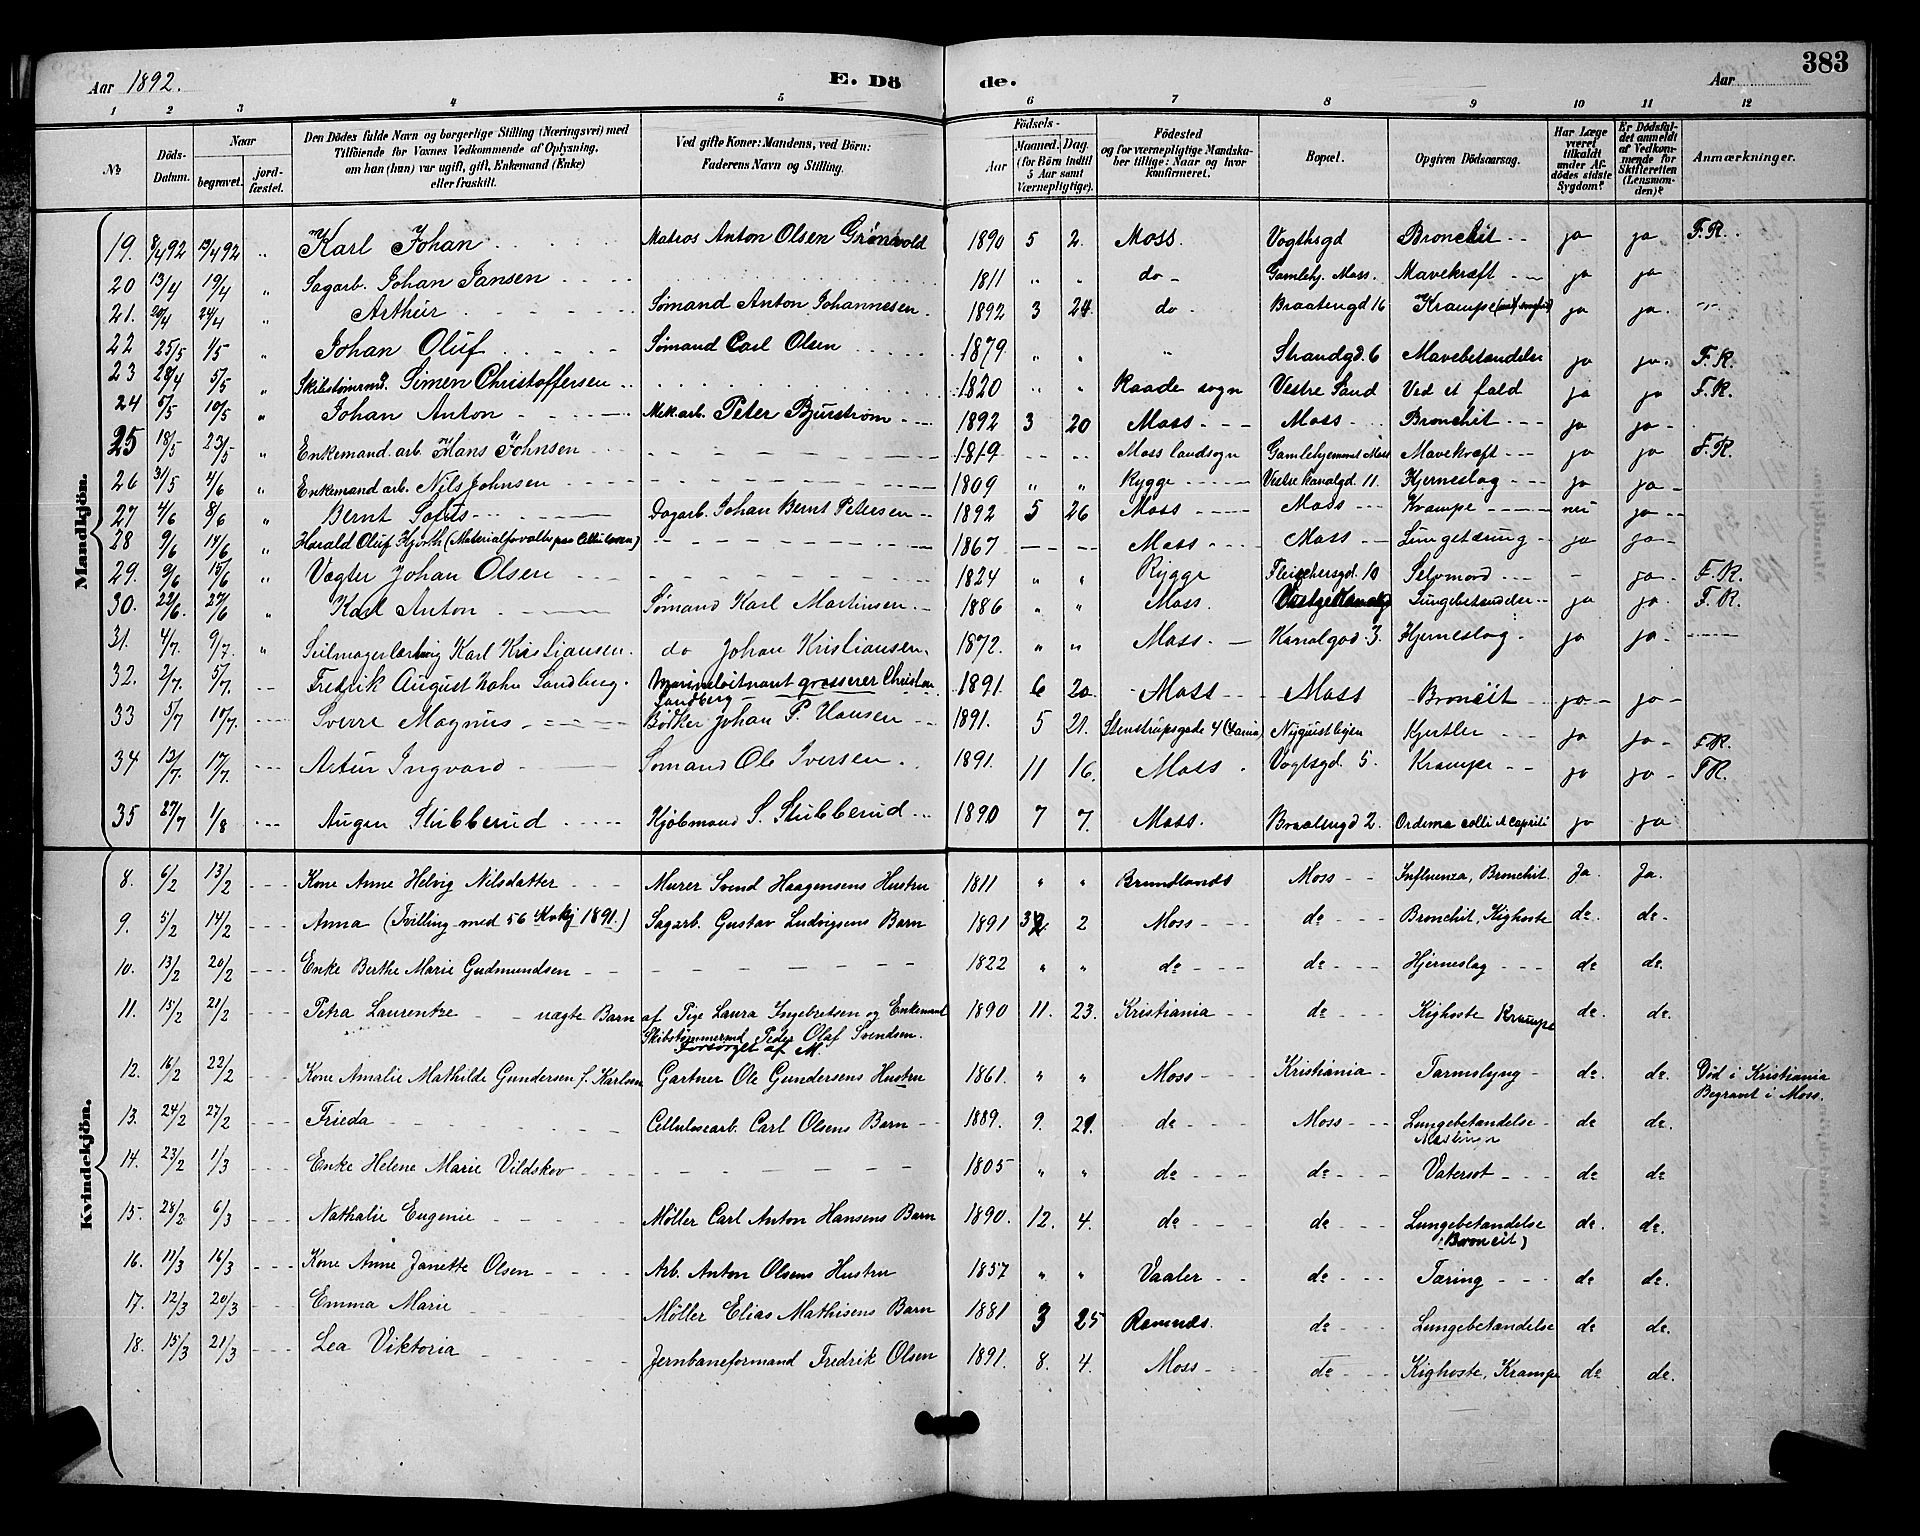 Aar 1892. E. Dö de. Aar 383
1 2 3 4 5 6 7 8 9 10 11 12
№ Döds-Datum. Naar begravet. jordfæstet. Den Dödes fulde Navn og borgerlige Stilling (Næringsvei) med Tilföiende for Voxnes Vedkommende af Oplysning, om han (hun) var ugift, gift, Enkemand (Enke) eller fraskilt. Ved gifte Koner: Mandens, ved Börn: Faderens Navn og Stilling. Födsels- Aar Maaned. Dag. (for Börn indtil 5 Aar samt Værnepligtige). Födested og for værnepligtige Mandskaber tillige: Naar og hvor konfirmeret. Bopæl. Opgiven Dödsaarsag. Har Læge været tilkaldt under Afdödes sidste Sygdom? Er Dödsfaldet anmeldt af Vedkommende for Skifteretten (Lensmanden)? Anmærkninger.
Mandkjön.
19. 8/4 92 13/4 92 " Karl Johan Matros Anton Olsen Grønvold 1890 5 2. Moss. Vogthsgd Bronchit ja ja F.R.
20 13/4 19/4 " Sagarb. Johan Jansen 1811 " " do Gamlehj. Moss. Mavekræft ja ja
21. 20/4 24/4 " Arthur Sømand Anton Johannesen. 1892 3 24 do Braatengd 16 Krampe ja ja
22 25/5 1/5 " Johan Oluf Sømand Carl Olsen 1879 " " " Strandgd. 6 Mavebetændelse ja ja F.R.
23 28/4 5/5 " Skibstømrmd. Simen Christoffersen 1820 " " Raade sogn Vestre Sand Ved et fald ja ja F.R.
24 5/5 10/5 " Johan Anton Mek.arb. Peter Bjurstrøm 1892 3 20 Moss Moss Bronchit ja ja
25 18/5 23/5 " Enkemand. arb. Hans Johnsen 1819 Moss landsogn Gamlehjemmet Moss Mavekræft ja ja F.R.
26 31/5 4/6 " Enkemand arb. Nils Johnsen 1809 " " Rygge Vestre kanalgd 11. Hjerneslag ja ja
27 4/6 8/6 " Bernt Dagarb. Johan Bernt Petersen 1892 5 26 Moss Moss Krampe nei ja
28 9/6 14/6 " Harald Oluf Hjorth (Materialforvalter paa Cellulosen) 1867 Moss Moss Lungetæring ja ja
29. 9/6 15/6 " Vægter Johan Olsen 1824 " " Rygge Fleischersgd. 10 Selvmord ja F.R.
30. 22/6. 27/6 Karl Anton Sømand Karl Martinsen 1886 " " Moss. Lungebetændelse ja ja F.R.
31. 4/7. 9/7. " Seilmagerlærling Karl Kristiansen. do Johan Kristiansen. 1872. " " Moss. Kanalgad 3. Hjerneslag. ja ja
32. 2/7. 5/7. Fredrik August Hahn Sandberg. Marineløitnant grosserer Christen Sandberg 1891. 6 20. Moss Moss Broncit ja ja
33 5/7 10/7. Sverre Magnus Bødker Johan P. Hansen 1891. 5 21. Stenstrupsgade 4 Kjertler ja ja F.R.
34 13/7. 17/7. Artur Ingvard Sømand Ole Iversen 1891. 11 16. Moss Vogtsgd. 5. Krampe ja ja F.R.
35 27/7 1/8 Augen Stubberud Kjøbmand S. Stubberud 1890 7 7. Moss. Braatengd 2. ja ja
Kvindekjön.
8. 6/2 13/2 Kone Anne Helvig Nilsdatter Murer Svend Haagensens Hustru 1811 " " Brundlands Moss Influenza, Bronchit. Ja. Ja.
9. 5/2 14/2 Anna (Tvilling med 56 Kvkj 1891.) Sagarb. Gustav Ludvigsens Barn 1891 2 Moss do Bronchit, Kighoste do. do.
10. 13/2 20/2 Enke Berthe Marie Gudmundsen 1822 " " do do Hjerneslag do do.
11. 15/2 21/2 Petra Laurentze uægte Barn af Pige Laura Ingebretsen og Enkemand Skibstømmermd Peder Olaf Svendsen. Forsørget af M. 1890 11. 23. Kristiania do Kighoste Krampe do. do.
12. 16/2 22/2 Kone Amalie Mathilde Gundersen f. Karlsen Gartner Ole Gundersens Hustru 1861. " " Moss Kristiania Tarmslyng do. do. Død i Kristiania Begravet i Moss.
13. 24/2 27/2 Frieda Cellulosearb. Carl Olsens Barn 1889. 9. 21. do Moss Lungebetændelse Mæslinger do do.
14. 23/2 1/3 Enke Helene Marie Vildskov 1805 " " do do. Vatersot do do
15. 28/2 6/3 Nathalie Eugenie Møller Carl Anton Hansens Barn 1890. 12. 4. do do Lungebetændelse (Broncit) do. do.
16. 11/3 16/3 Kone Anne Janette Olsen Arb. Anton Olsens Hustru 1857 " " Vaaler do Tæring do do.
17. 12/3 20/3 Emma Marie Møller Elias Mathisens Barn 1881 3 25 Ramnæs. do Lungebetændelse do do.
18. 15/3 21/3 Lea Viktoria Jernbaneformand Fredrik Olsen 1891. 8. 4. Moss do Kighoste, Krampe do do.